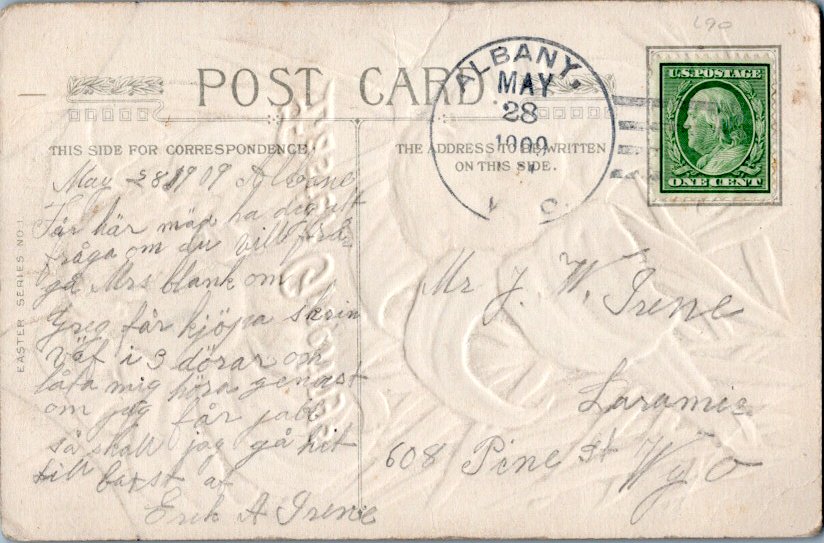 L90
POST CARD
ALBANY.
MAY
28
1909
U.S. POSTAGE
ONE CENT
THIS SIDE FOR CORRESPONDENCE.
THE ADDRESS TO BE WRITTEN
ON THIS SIDE.
EASTER SERIES NO. 1
May 28 1909
får här
fråga om du vill
gå Mrs blank om
får kjöpa
i 3 dörar och
låta mig höra genast
om jag får jabb
så skall jag gå hit
till
Erik A Irene
Mr J. W. Irene
Laramie
608 Pine st Wyo